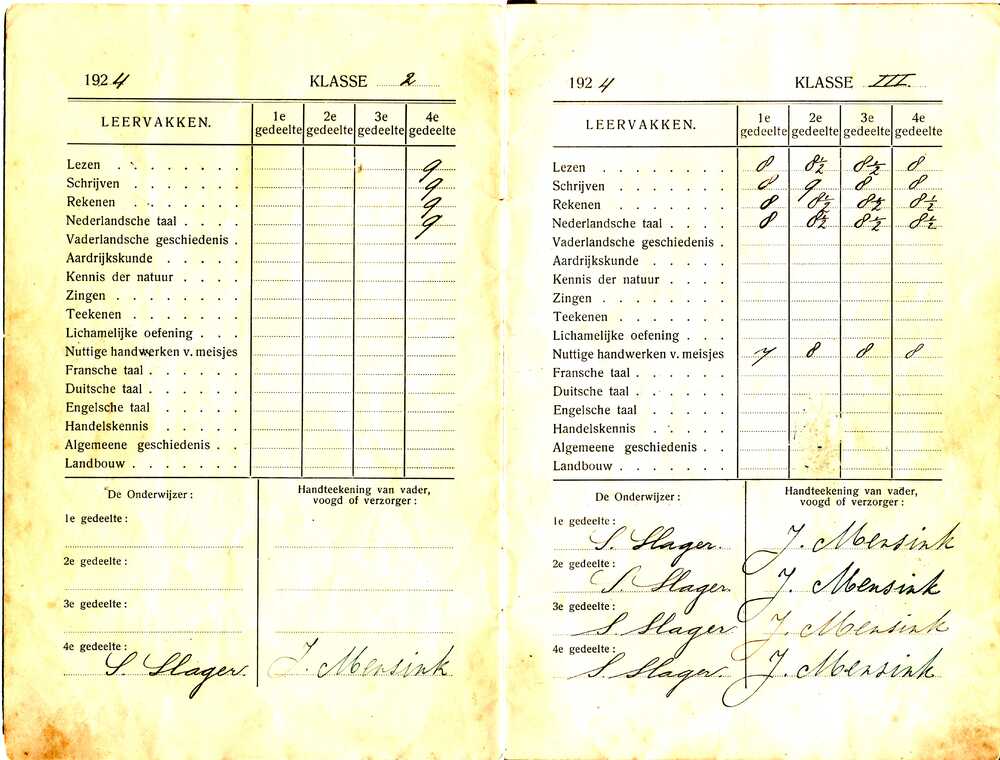 1924 KLASSE 2
LEERVAKKEN. 1e gedeelte 2e gedeelte 3e gedeelte 4e gedeelte
Lezen 9
Schrijven 9
Rekenen 9
Nederlandsche taal 9
Vaderlandsche geschiedenis
Aardrijkskunde
Kennis der natuur
Zingen
Teekenen
Lichamelijke oefening
Nuttige handwerken v. meisjes
Fransche taal
Duitsche taal
Engelsche taal
Handelskennis
Algemeene geschiedenis
Landbouw
De Onderwijzer: Handteekening van vader,
voogd of verzorger:
1e gedeelte:
2e gedeelte:
3e gedeelte:
4e gedeelte:
S. Slager. J. Mensink
1924 KLASSE III.
LEERVAKKEN. 1e gedeelte 2e gedeelte 3e gedeelte 4e gedeelte
Lezen 8 8½ 8½ 8
Schrijven 8 9 8 8
Rekenen 8 8½ 8½ 8½
Nederlandsche taal 8 8½ 8½ 8½
Vaderlandsche geschiedenis
Aardrijkskunde
Kennis der natuur
Zingen
Teekenen
Lichamelijke oefening
Nuttige handwerken v. meisjes 7 8 8 8
Fransche taal
Duitsche taal
Engelsche taal
Handelskennis
Algemeene geschiedenis
Landbouw
De Onderwijzer: Handteekening van vader,
voogd of verzorger:
1e gedeelte:
S. Slager. J. Mensink
2e gedeelte:
S. Slager. J. Mensink
3e gedeelte:
S. Slager J. Mensink
4e gedeelte:
S. Slager. J. Mensink